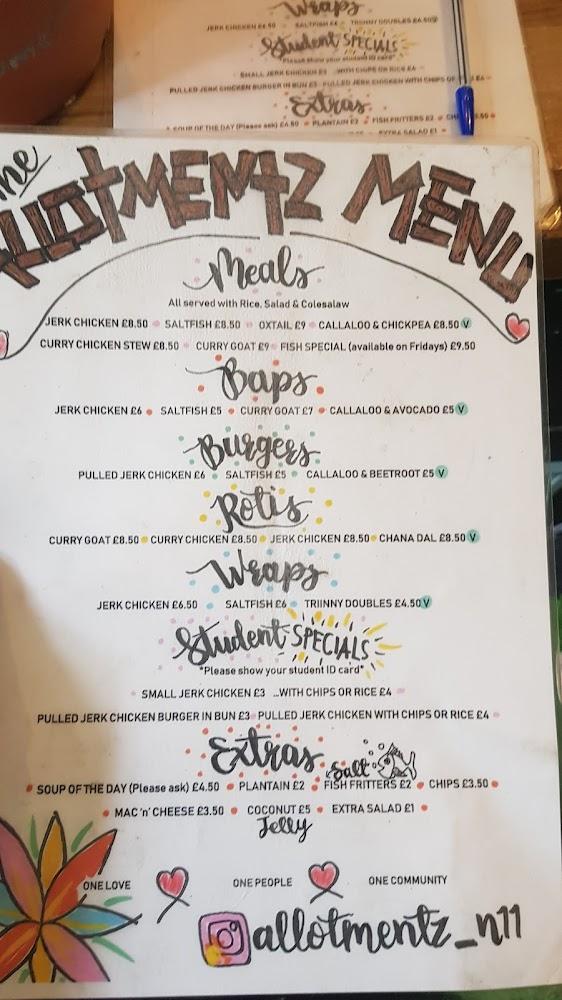 Wraps
JERK CHICKEN £6.50 SALTFISH £6 TRIINNY DOUBLES £4.50
Student SPECIALS
*Please show your student ID card*
SMALL JERK CHICKEN £3 ...WITH CHIPS OR RICE £4
PULLED JERK CHICKEN BURGER IN BUN £3 PULLED JERK CHICKEN WITH CHIPS OR £4
Extras
SOUP OF THE DAY (Please ask) £4.50 PLANTAIN £2 FISH FRITTERS £2
EXTRA SALAD £1
The
ALLOTMENTZ MENU
Meals
All served with Rice, Salad & Colesalaw
JERK CHICKEN £8.50 SALTFISH £8.50 OXTAIL £9 CALLALOO & CHICKPEA £8.50 V
CURRY CHICKEN STEW £8.50 CURRY GOAT £9 FISH SPECIAL (available on Fridays) £9.50
Baps
JERK CHICKEN £6 SALTFISH £5 CURRY GOAT £7 CALLALOO & AVOCADO £5 V
Burgers
PULLED JERK CHICKEN £6 SALTFISH £5 CALLALOO & BEETROOT £5 V
Rotis
CURRY GOAT £8.50 CURRY CHICKEN £8.50 JERK CHICKEN £8.50 CHANA DAL £8.50 V
Wraps
JERK CHICKEN £6.50 SALTFISH £6 TRIINNY DOUBLES £4.50 V
Student SPECIALS
*Please show your student ID card*
SMALL JERK CHICKEN £3 ...WITH CHIPS OR RICE £4
PULLED JERK CHICKEN BURGER IN BUN £3 PULLED JERK CHICKEN WITH CHIPS OR RICE £4
Extras
Salt
SOUP OF THE DAY (Please ask) £4.50 PLANTAIN £2 FISH FRITTERS £2 CHIPS £3.50
MAC 'n' CHEESE £3.50 COCONUT £5 EXTRA SALAD £1
Jelly
ONE LOVE ONE PEOPLE ONE COMMUNITY
allotmentz_n11